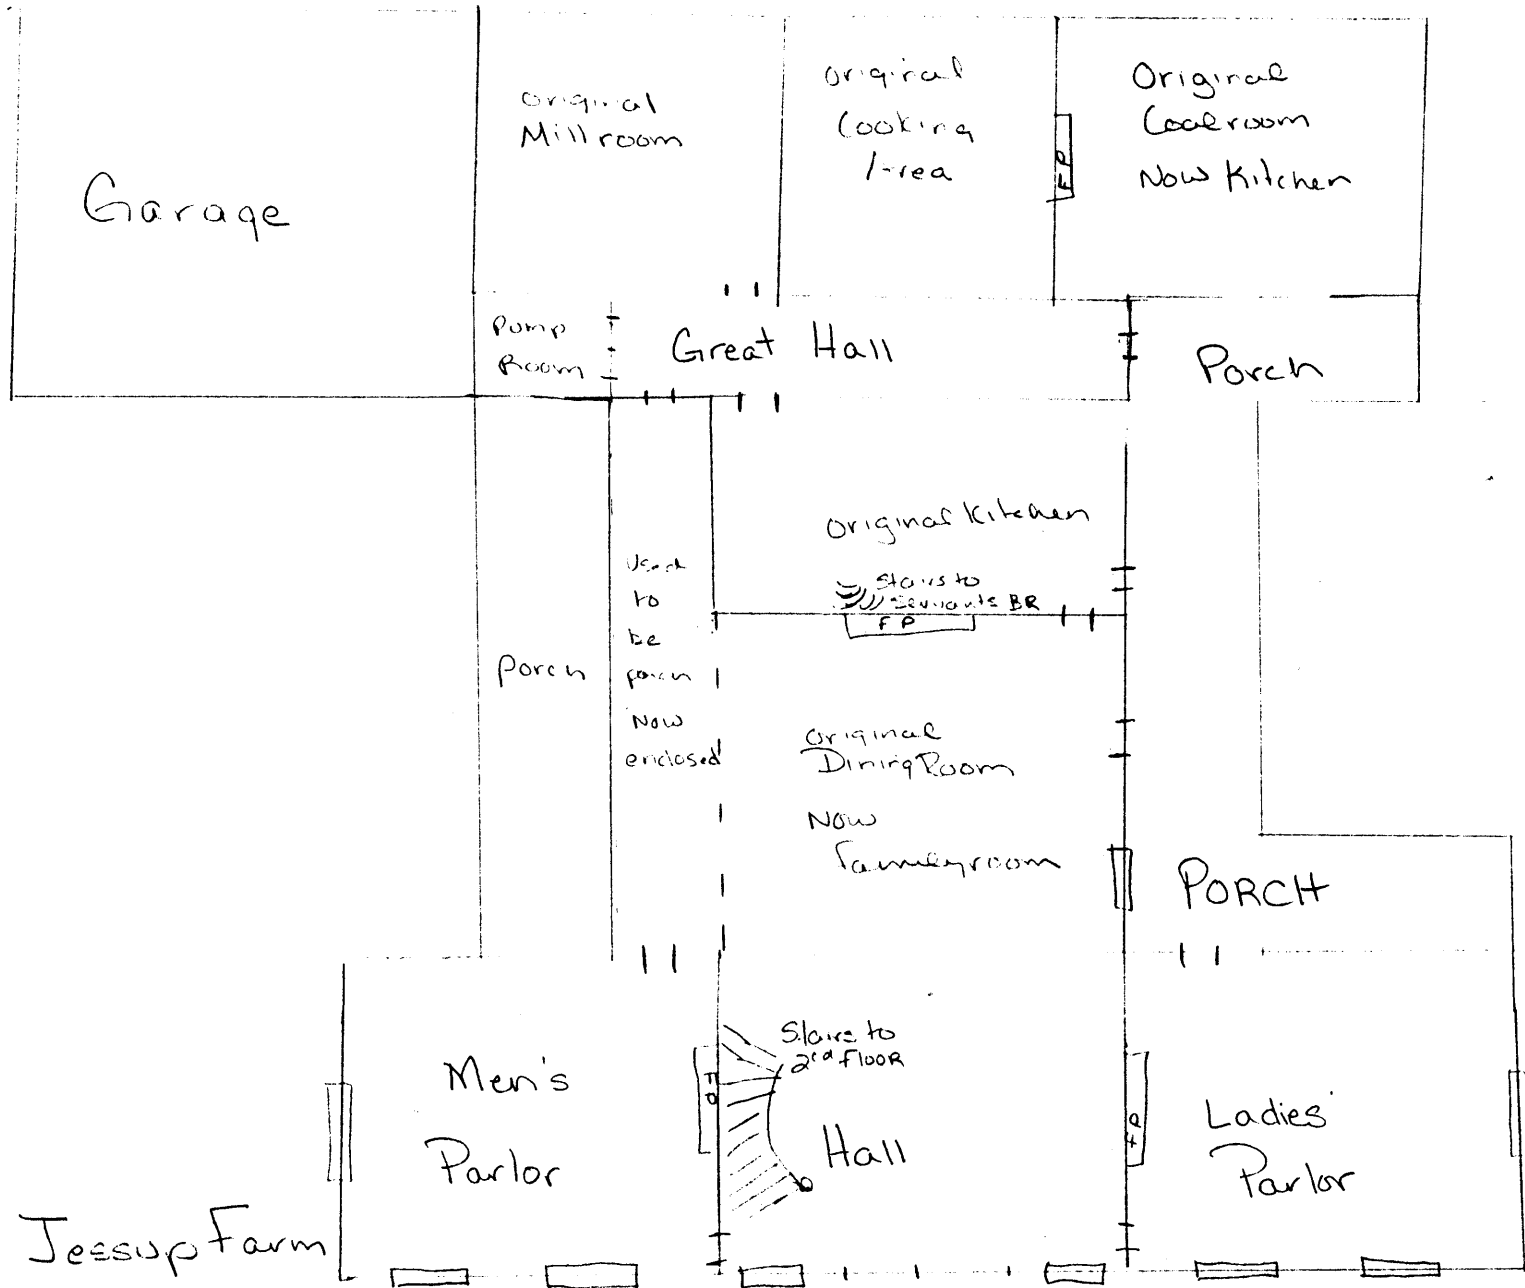 Garage
original
Millroom
original
Cooking
Area
FP
Original
Coalroom
Now Kitchen
Pump
Room
Great Hall
Porch
original Kitchen
Stairs to
Servants BR
FP
Used
to
be
porch
Now
enclosed
Porch
original
Dining Room
Now
Familyroom
PORCH
Men's
Parlor
FP
Stairs to
2nd FlooR
Hall
FP
Ladies'
Parlor
Jessup Farm